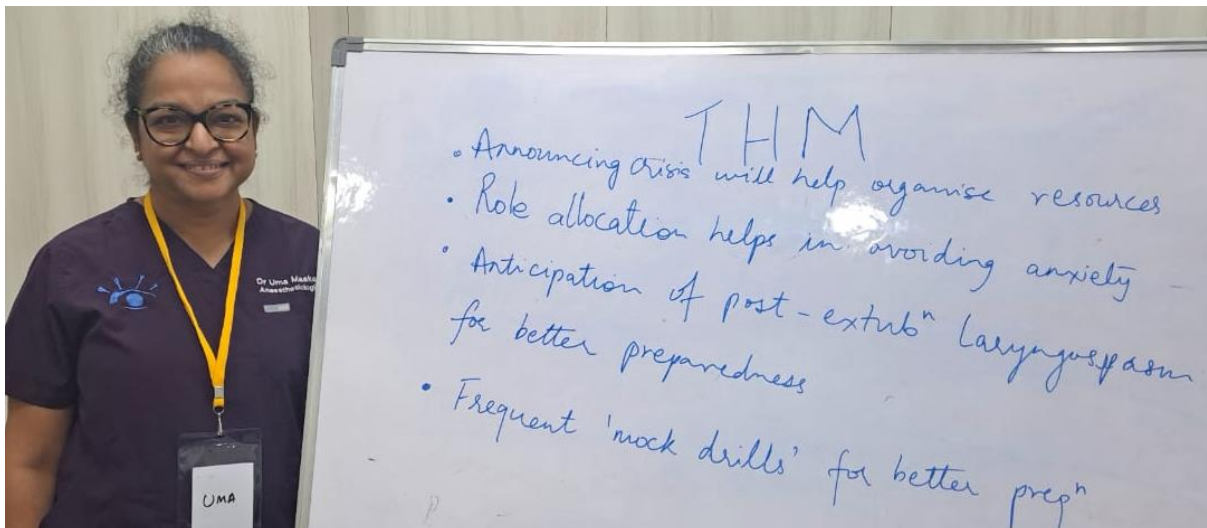 THM
• Announcing crisis will help organise resources
• Role allocation helps in avoiding anxiety
• Anticipation of post-extubⁿ Laryngospasm
for better preparedness
• Frequent 'mock drills' for better prepⁿ
Dr Uma
UMA